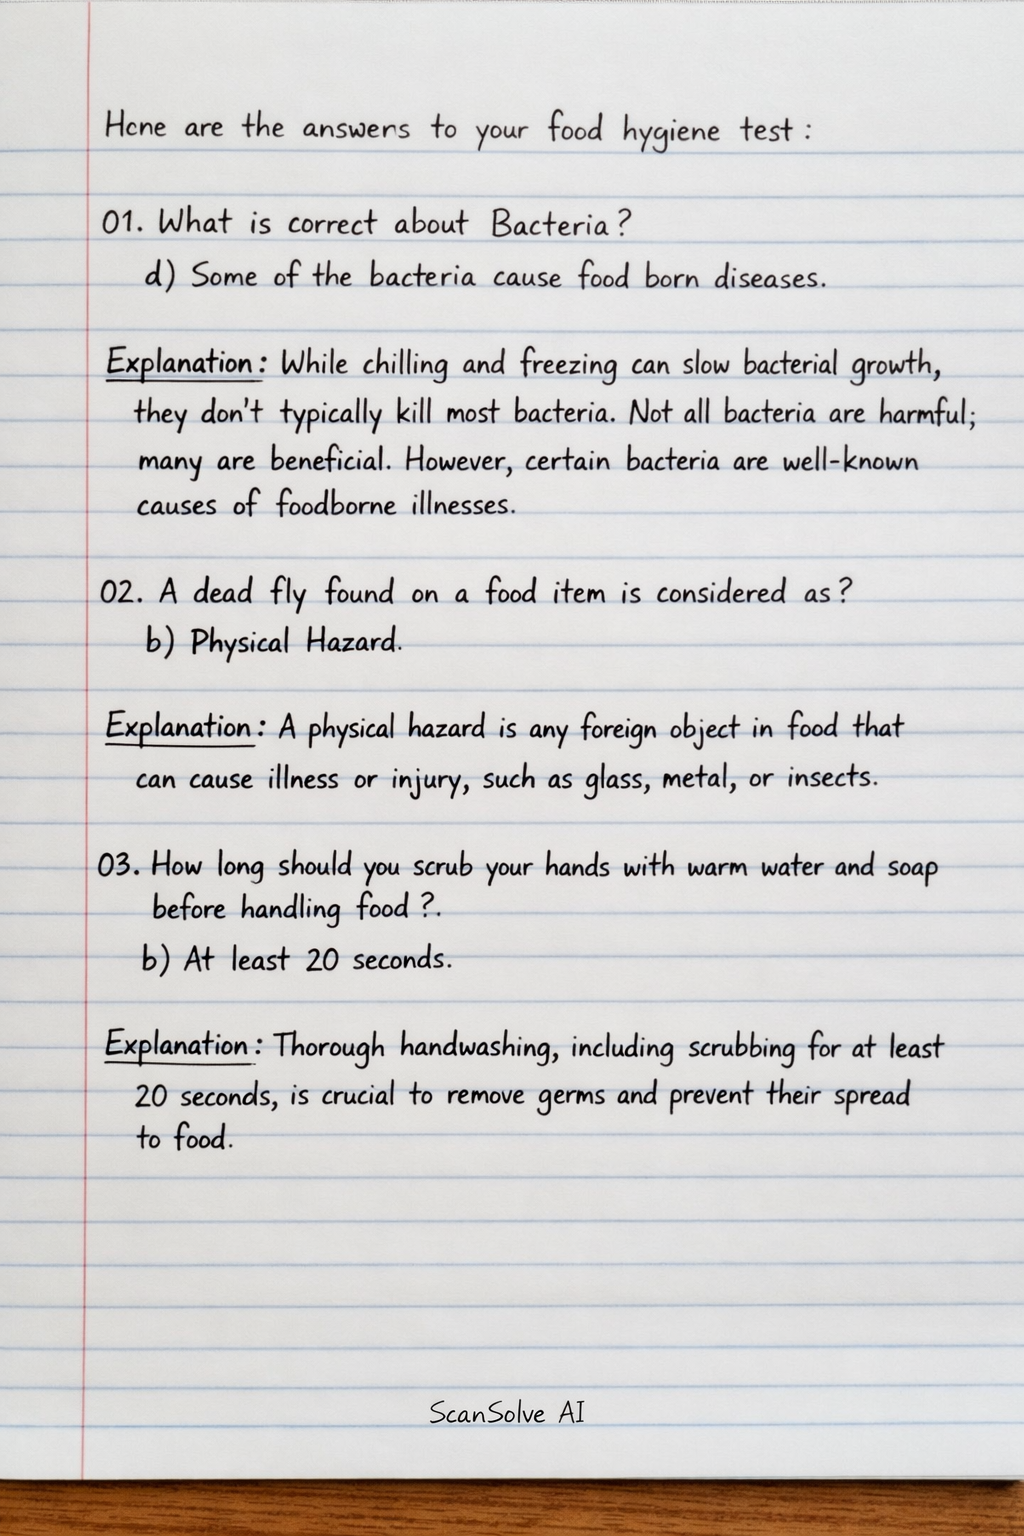 Hcne are the answers to your food hygiene test :
01. What is correct about Bacteria?
d) Some of the bacteria cause food born diseases.
Explanation: While chilling and freezing can slow bacterial growth,
they don't typically kill most bacteria. Not all bacteria are harmful;
many are beneficial. However, certain bacteria are well-known
causes of foodborne illnesses.
02. A dead fly found on a food item is considered as?
b) Physical Hazard.
Explanation: A physical hazard is any foreign object in food that
can cause illness or injury, such as glass, metal, or insects.
03. How long should you scrub your hands with warm water and soap
before handling food ?.
b) At least 20 seconds.
Explanation: Thorough handwashing, including scrubbing for at least
20 seconds, is crucial to remove germs and prevent their spread
to food.
ScanSolve AI